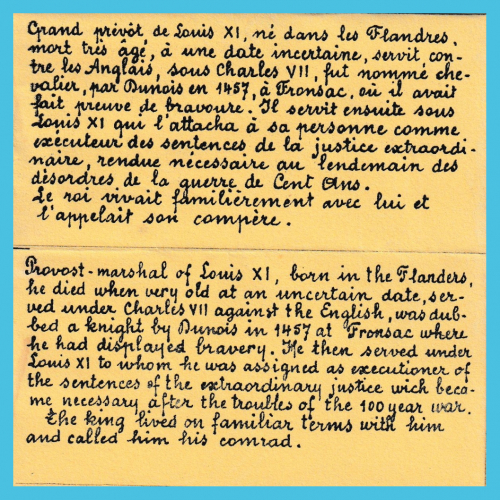 Grand prévôt de Louis XI, né dans les Flandres,
mort très âgé, à une date incertaine, servit con-
tre les Anglais, sous Charles VII, fut nommé che-
valier, par Dunois en 1457, à Fronsac, où il avait
fait preuve de bravoure. Il servit ensuite sous
Louis XI qui l'attacha à sa personne comme
exécuteur des sentences de la justice extraordi-
naire, rendue nécessaire au lendemain des
désordres de la guerre de Cent Ans.
Le roi vivait familièrement avec lui et
l'appelait son compère.
Provost-marshal of Louis XI, born in the Flanders,
he died when very old at an uncertain date, ser-
ved under Charles VII against the English, was dub-
bed a knight by Dunois in 1457 at Fronsac where
he had displayed bravery. He then served under
Louis XI to whom he was assigned as executioner of
the sentences of the extraordinary justice wich beca-
me necessary after the troubles of the 100 year war.
The king lived on familiar terms with him
and called him his comrad.